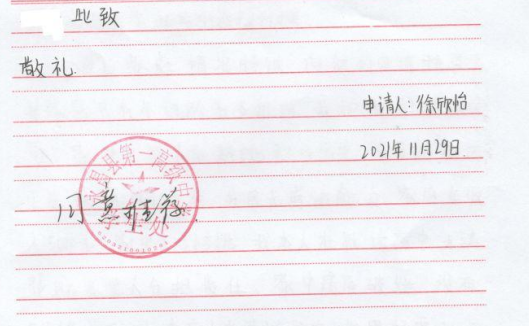 此致
敬礼.
申请人:徐欣怡
2021年11月29日.
永昌县第一高级中学
学生处
同意推荐.